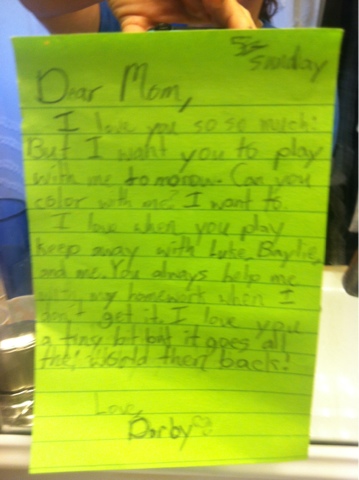 Sunday
Dear Mom,
I love you so so much!
But I want you to play
with me tomorrow. Can you
color with me? I want to.
I love when you play
keep away with Luke, Baylie,
and me. You always help me
with my homework when I
don't get it. I love you
a tiny bit but it goes all
the world then back!
Love,
Darby